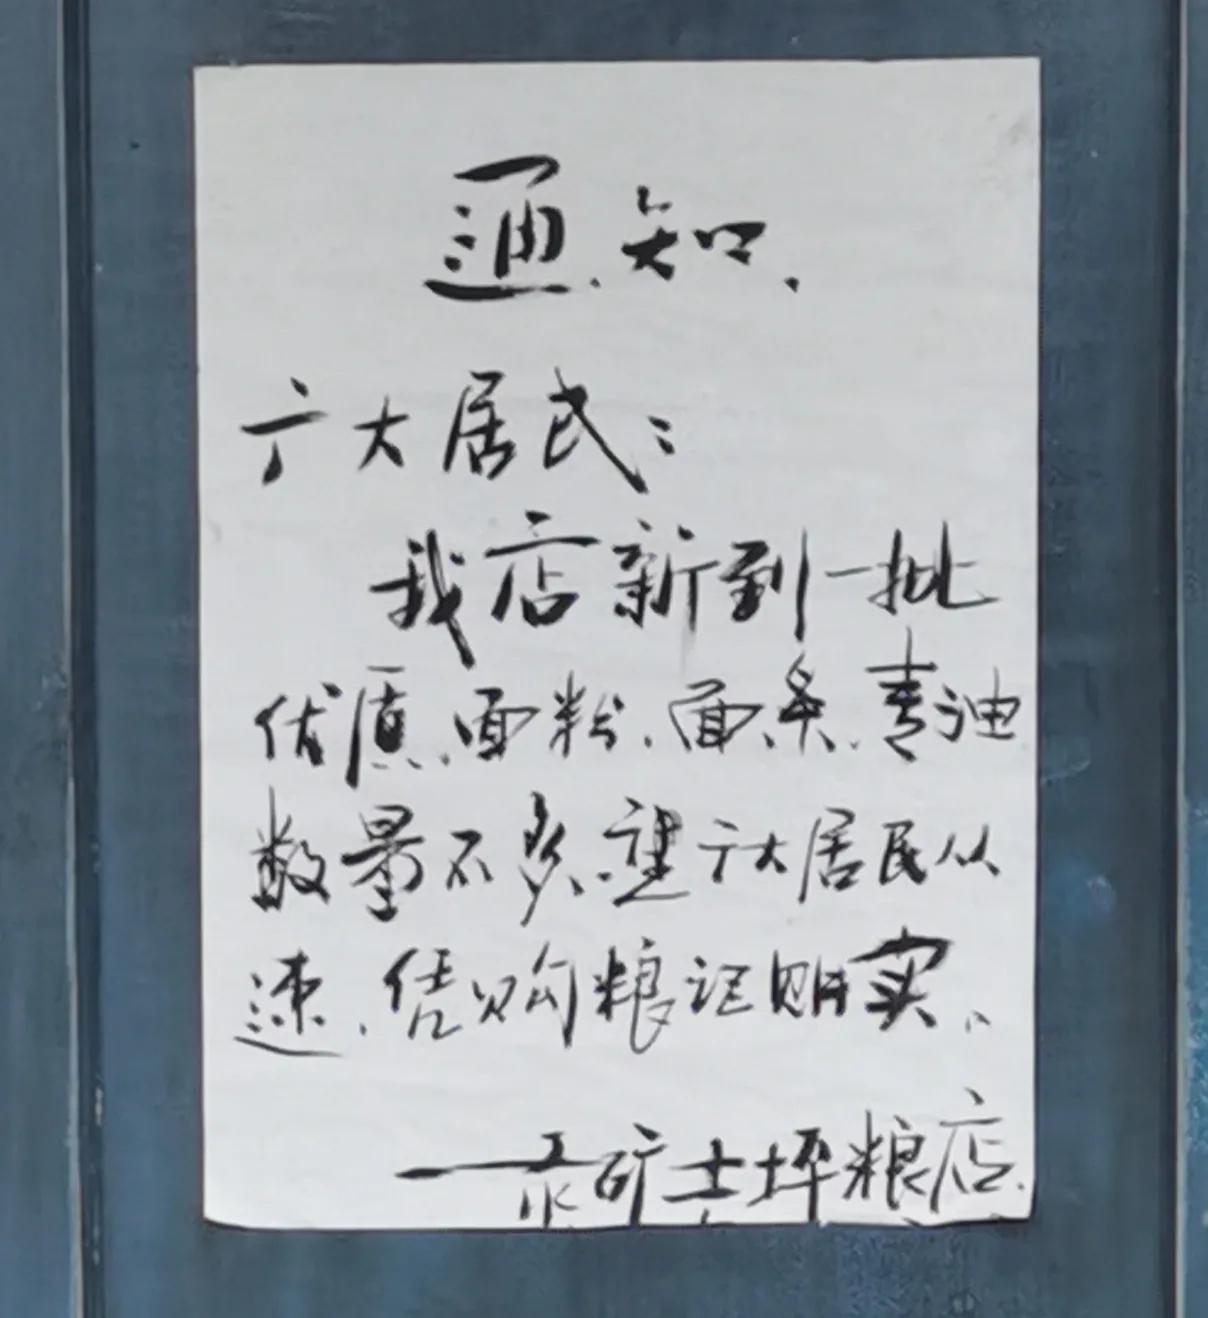 通知
广大居民:
我店新到一批
优质、面粉、面条、青油
数量不多、望广大居民从
速、凭购粮证购买、
汞矿土坪粮店